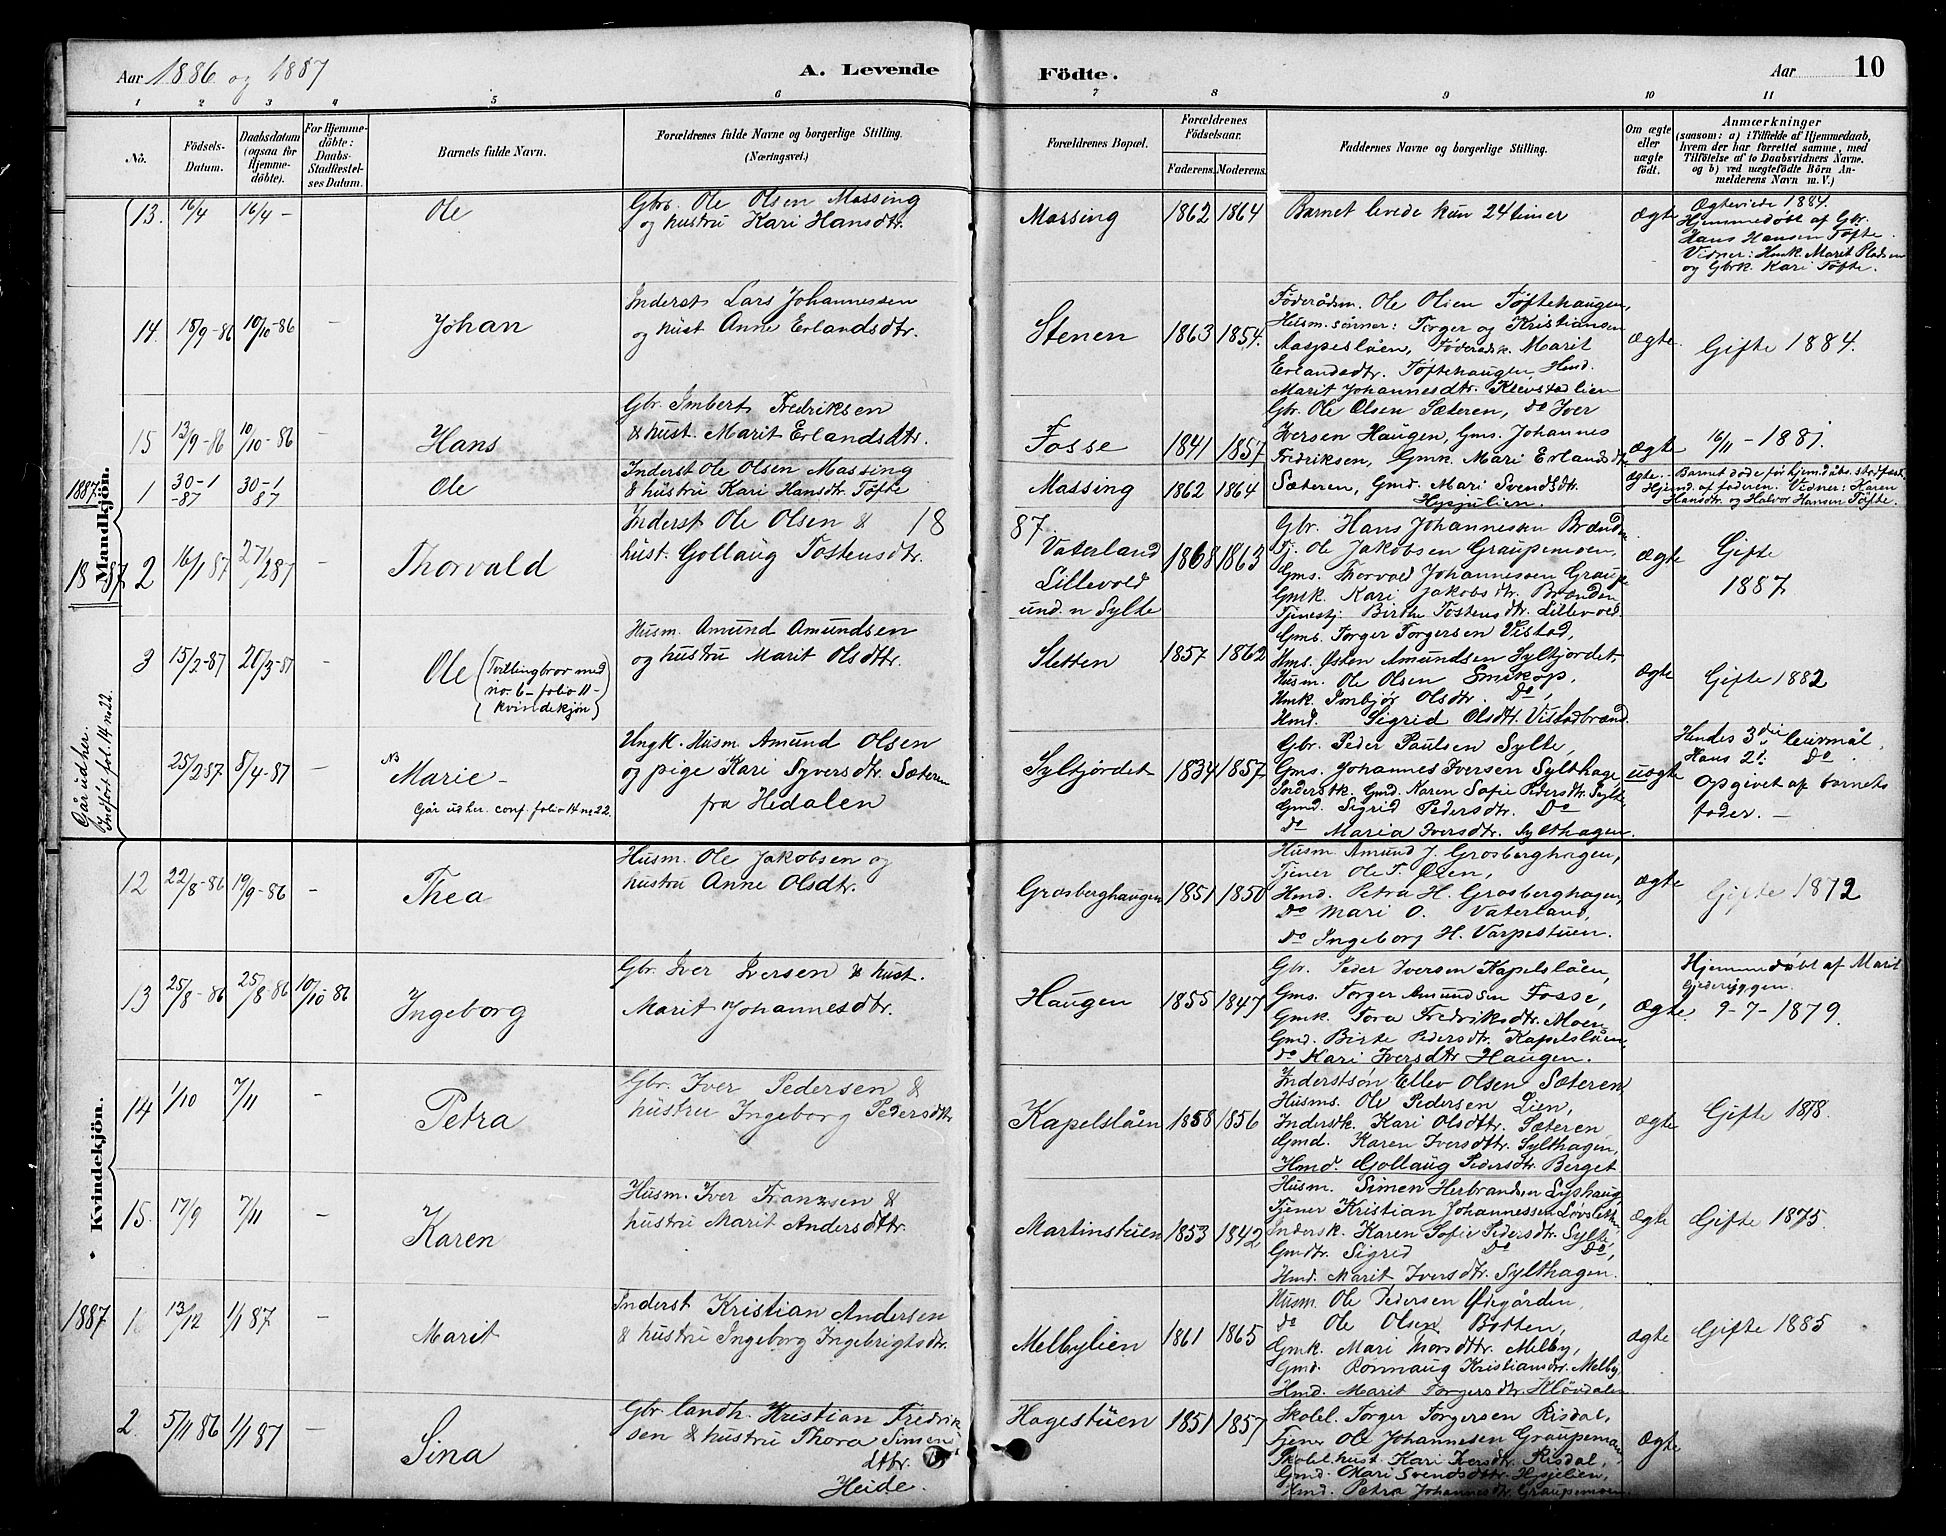 Aar 1886 og 1887
A. Levende
Födte.
Aar
10
1 2 3 4 5 6 7 8 9 10 11
No.
Födsels-Datum.
Daabsdatum (ogsaa for Hjemmedöbte).
For Hjemmedöbte: Daabs-Stadfæstelses Datum.
Barnets fulde Navn.
Forældrenes fulde Navne og borgerlige Stilling. (Næringsvei.)
Forældrenes Bopæl.
Forældrenes Födselsaar.
Faderens. Moderens.
Faddernes Navne og borgerlige Stilling.
Om ægte eller uægte födt.
Anmærkninger
(saasom: a) i Tilfælde af Hjemmedaab, hvem der har forrettet samme, med Tilföielse af to Daabsvidners Navne. og b) ved uægtefödte Börn Anmelderens Navn m. V.)
Mandkjön.
13. 16/4 16/4 -
Ole
Gbr. Ole Olsen Massing
og hustru Kari Hansdtr.
Massing 1862 1864
Barnet levede kun 24 timer
ægte
Ægteviede 1884.
Hjemmedøbt af Gbr.
Hans Hansen Tøfte.
Vidner: Hmk. Marit Pladsen
og Gbrk. Kari Tøfte.
14. 18/9-86 10/10-86 -
Johan
Inderst Lars Johannessen
og hust Anne Erlandsdtr.
Stenen 1863 1854.
Föderådsm. Ole Olsen Töftehaugen,
Husm.sönner: Torger og Kristiansen
Aaspeslåen, Föderådsk. Marit
Erlandsdtr. Töftehaugen, Hmd.
Marit Johannesdtr. Klevstadlien
ægte.
Gifte 1884.
15 13/9-86 10/10-86 -
Hans
Gbr. Imbert Fredriksen
& hust. Marit Erlandsdtr.
Fosse 1841 1857
Gbr. Ole Olsen Sæteren, do Iver
Iversen Haugen, Gms. Johannes
Fredriksen, Gmk. Mari Erlandsdtr.
Sæteren, Gmd. Mari Svendsdtr.
Hesjulien.
ægte
16/11-1881.
1887
1 30-1-87 30-1 87
Ole
Inderst Ole Olsen Massing
& hustru Kari Hansdtr. Tøfte
Massing 1862 1864
ægte.
Barnet døde før hjem.dåbs. stadfæst.
Hjemd. af faderen. Vidner: Karen
Hansdtr. og Halvor Hansen Tøfte.
1887
2 16/1 87 27/2 87 -
Thorvald
Inderst Ole Olsen & 18
hust. Gollaug Tostensdtr.
87.
Vaterland
Lillevold
und. n Sylte
1868 1863
Gbr. Hans Johannesen Brænden
Tj. Ole Jakobsen Graupemoen,
Gms. Thorvald Johannessen Graupe
Gmk. Kari Jakobsdtr. Brænden
Tjenestj. Birthe Tostensdtr. Lillevold
ægte
Gifte
1887
3 15/2-87 20/3-87 -
Ole (Tvillingbror med
no. 6 - folio 11 -
kvindekjøn)
Husm. Amund Amundsen
og hustru Marit Olsdtr.
Sletten 1857 1862
Gms. Torger Torgersen Vistad,
Hms. Østen Amundsen Syltjordet,
Husm. Ole Olsen Smikop,
Hmk. Imbjør Olsdtr. Do,
Hmd. Sigrid Olsdtr. Vistadbrænd.
ægte
Gifte 1882
Går ud her.
Indført fol. 14 no 22.
25/2 87. 8/4-87 -
NB Marie -
Går ud her. conf. folio 14 no 22.
Ungk. Husm. Amund Olsen
og pige Kari Syversdtr. Sæteren
fra Hedalen
Syltjordet 1834 1857
Gbr. Peder Paulsen Sylte,
Gms. Johannes Iversen Sylthagen
Gmd. Karen Sofie Pedersdtr. Sylte
Gmd. Sigrid Pedersdtr. Do
do Maria Iversdtr. Sylthagen.
uægte
Hendes 3die leiermål,
Hans 2d. Do.
Opgivet af barnets
fader. -
Kvindekjön.
12 22/8-86 19/9-86 -
Thea
Husm. Ole Jakobsen og
hustru Anne Olsdtr.
Grosberghaugen 1851 1850
Husm. Amund J. Grosberghagen,
Tjener Ole T. Øien,
Hmd. Petra H. Grosberghagen,
Do Mari O. Vaterland,
Do Ingeborg H. Varpestuen.
ægte
Gifte 1872
13 25/8-86 25/8-86 10/10-86
Ingeborg
Gbr. Iver Iversen & hust.
Marit Johannesdtr.
Haugen 1855 1847
Gbr. Peder Iversen Kapelslåen,
Gms. Torger Amundsen Fosse,
Gmk. Tora Fredriksdtr. Moen
Gmd. Birte Pedersdtr. Kapelslåen.
do Kari Iversdtr Haugen.
ægte.
Hjemmedøbt af Marit
Gjederyggen.
9-7-1879.
14 1/10 7/11 -
Petra
Gbr. Iver Pedersen &
hustru Ingeborg Pedersdtr
Kapelslåen 1858 1856
Inderstsön Ellev Olsen Sæteren
Husms. Ole Pedersen Lien,
Inderstk. Kari Olsdtr. Sæteren
Gmd. Karen Iversdtr. Sylthagen,
Hmd. Gollaug Pedersdtr. Berget
ægte
Gifte 1878.
15. 17/9 7/11 -
Karen
Husm. Iver Franzsen &
hustru Marit Andersdtr.
Martinstuen 1853 1842
Husm. Simen Herbrandsen Lyshaug,
Tjener Kristian Johannessen Løvsletten
Indersk. Karen Sofie Pedersdtr. Sylte,
Gmdtr. Sigrid Do Do,
Hmd. Marit Iversdtr. Sylthagen.
ægte
Gifte 1875.
1887
1 13/12 1/1 87 -
Marit
Inderst Kristian Andersen
& hustru Ingeborg Ingebrigtsdtr.
Melbylien 1861 1865
Husm. Ole Pedersen Ødegården,
do Ole Olsen Botten,
Gmk. Mari Thorsdtr. Melby,
Gmd. Ronnaug Kristiansdtr. Melby
Hmd. Marit Torgersdtr. Kløvdalen
ægte
Gifte 1885
2 5/11 86 1/1 87 -
Sina
Gbr. landh. Kristian Fredrik
sen & hustru Thora Simens
dtr.
Heide.
Hagestuen 1851 1857
Skolel. Torger Torgersen Risdal,
Tjener Ole Johannesen Graupemoen,
Skolel.hust. Kari Iversdtr. Risdal,
Gmd. Mari Svendsdtr. Hesjelien,
Hmd. Petra Johannesdtr. Graupemoen.
ægte